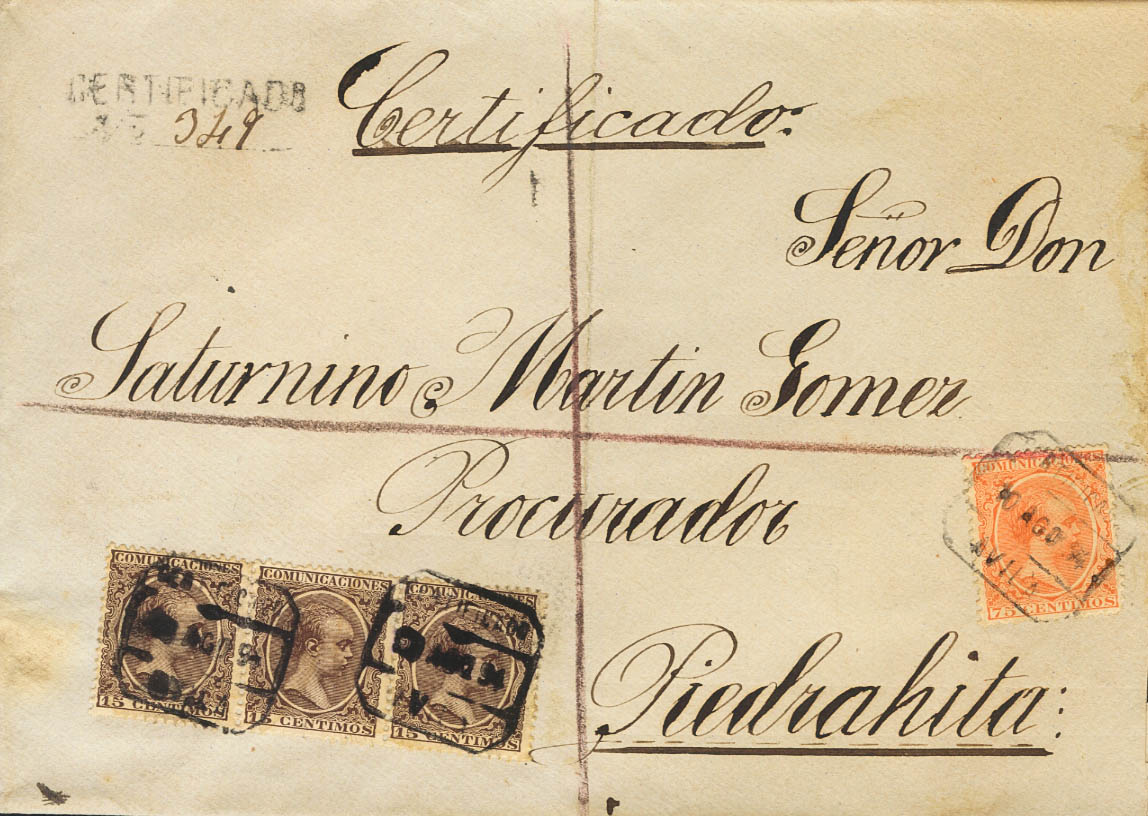 CERTIFICADO
349
Certificado:
Señor Don
Saturnino Martin Gomez
Procurador
Piedrahita:
COMUNICACIONES
15 CENTIMOS
COMUNICACIONES
15 CENTIMOS
COMUNICACIONES
15 CENTIMOS
COMUNICACIONES
AGO
AVILA
75 CENTIMOS